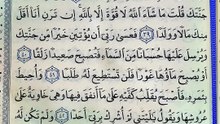 جَنَّتَكَ قُلْتَ مَا شَآءَ ٱللَّهُ لَا قُوَّةَ إِلَّا بِٱللَّهِ إِن تَرَنِ أَنَا۠ أَقَلَّ
مِنكَ مَالًا وَوَلَدًا ٣٩ فَعَسَىٰ رَبِّىٓ أَن يُؤْتِيَنِ خَيْرًا مِّن جَنَّتِكَ
وَيُرْسِلَ عَلَيْهَا حُسْبَانًا مِّنَ ٱلسَّمَآءِ فَتُصْبِحَ صَعِيدًا زَلَقًا ٤٠
أَوْ يُصْبِحَ مَآؤُهَا غَوْرًا فَلَن تَسْتَطِيعَ لَهُۥ طَلَبًا ٤١ وَأُحِيطَ
بِثَمَرِهِۦ فَأَصْبَحَ يُقَلِّبُ كَفَّيْهِ عَلَىٰ مَآ أَنفَقَ فِيهَا وَهِىَ خَاوِيَةٌ عَلَىٰ
عُرُوشِهَا وَيَقُولُ يَٰلَيْتَنِى لَمْ أُشْرِكْ بِرَبِّىٓ أَحَدًا ٤٢ وَلَمْ تَكُن لَّهُۥ